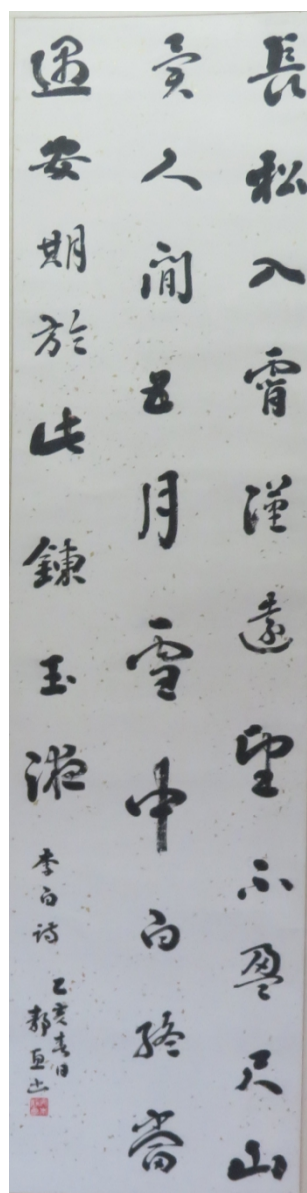 長松入霄漢遠望不盈尺山
異人間五月雪中白終當
遇安期於此鍊玉液
李白詩
乙亥春日